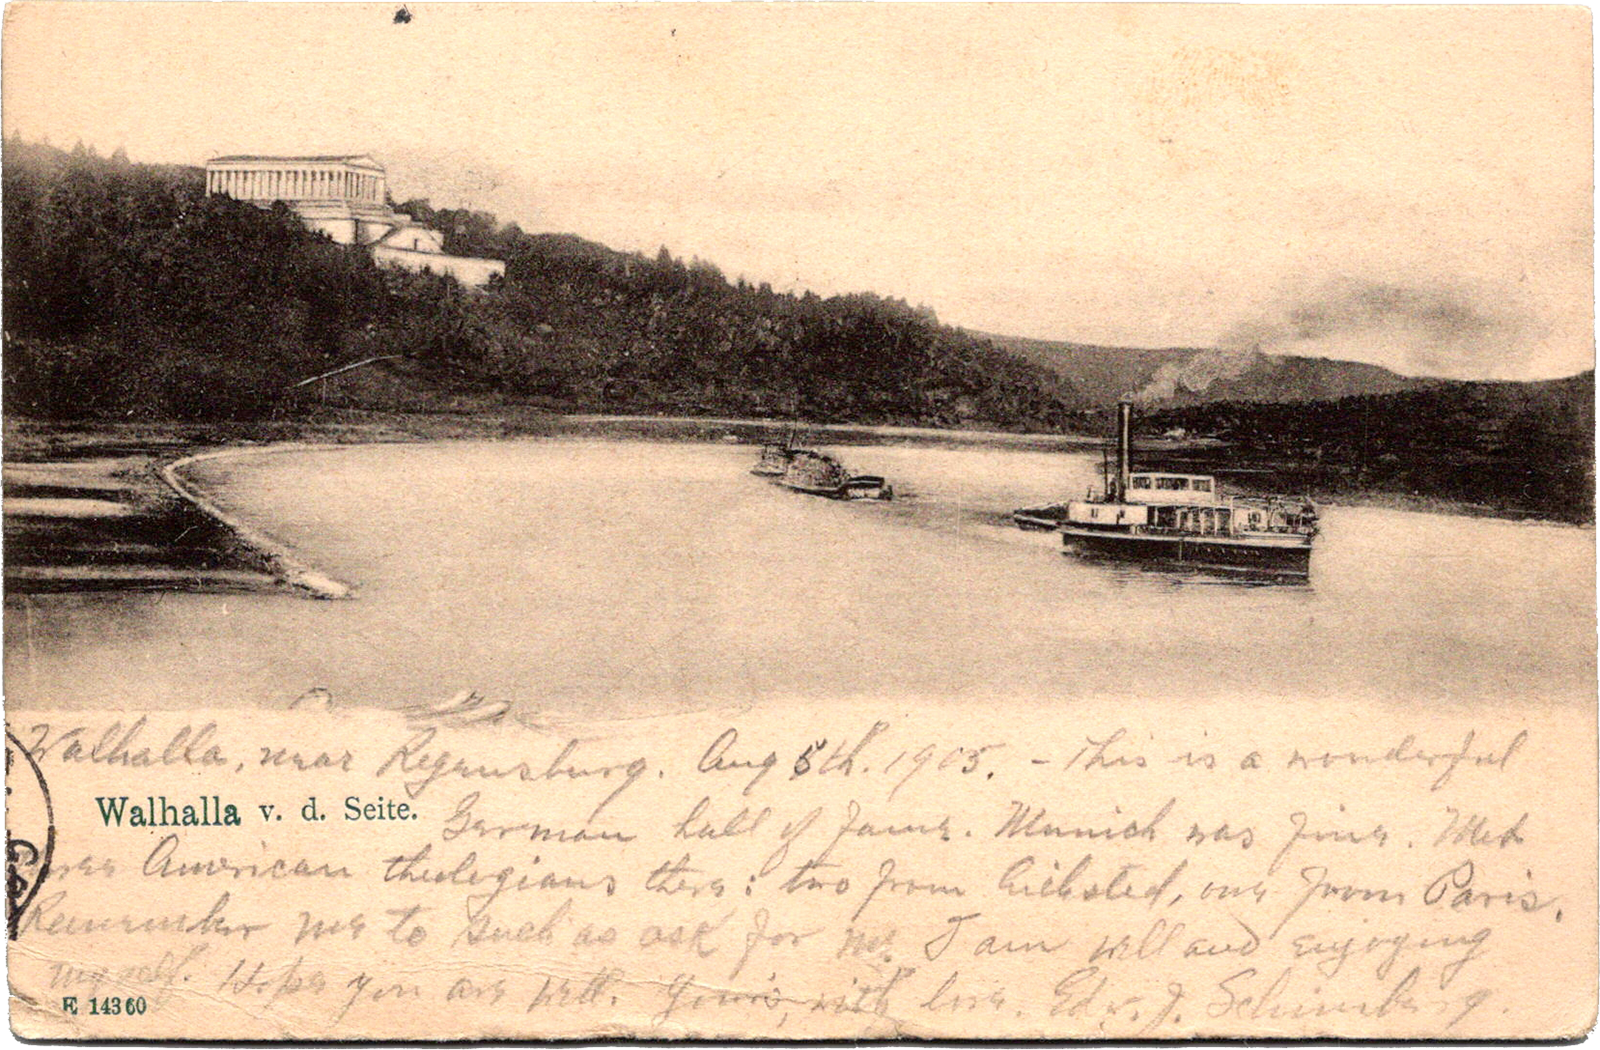 Walhalla, near Regensburg. Aug 5th. 1905. - This is a wonderful
Walhalla v. d. Seite.
German hall of fame. Munich was fine. Met
American theologians there: two from, one from Paris.
Remember me to such as ask for me. I am well and enjoying
myself. Hope you are well. Yours, with love. Edw. J.
E 14360